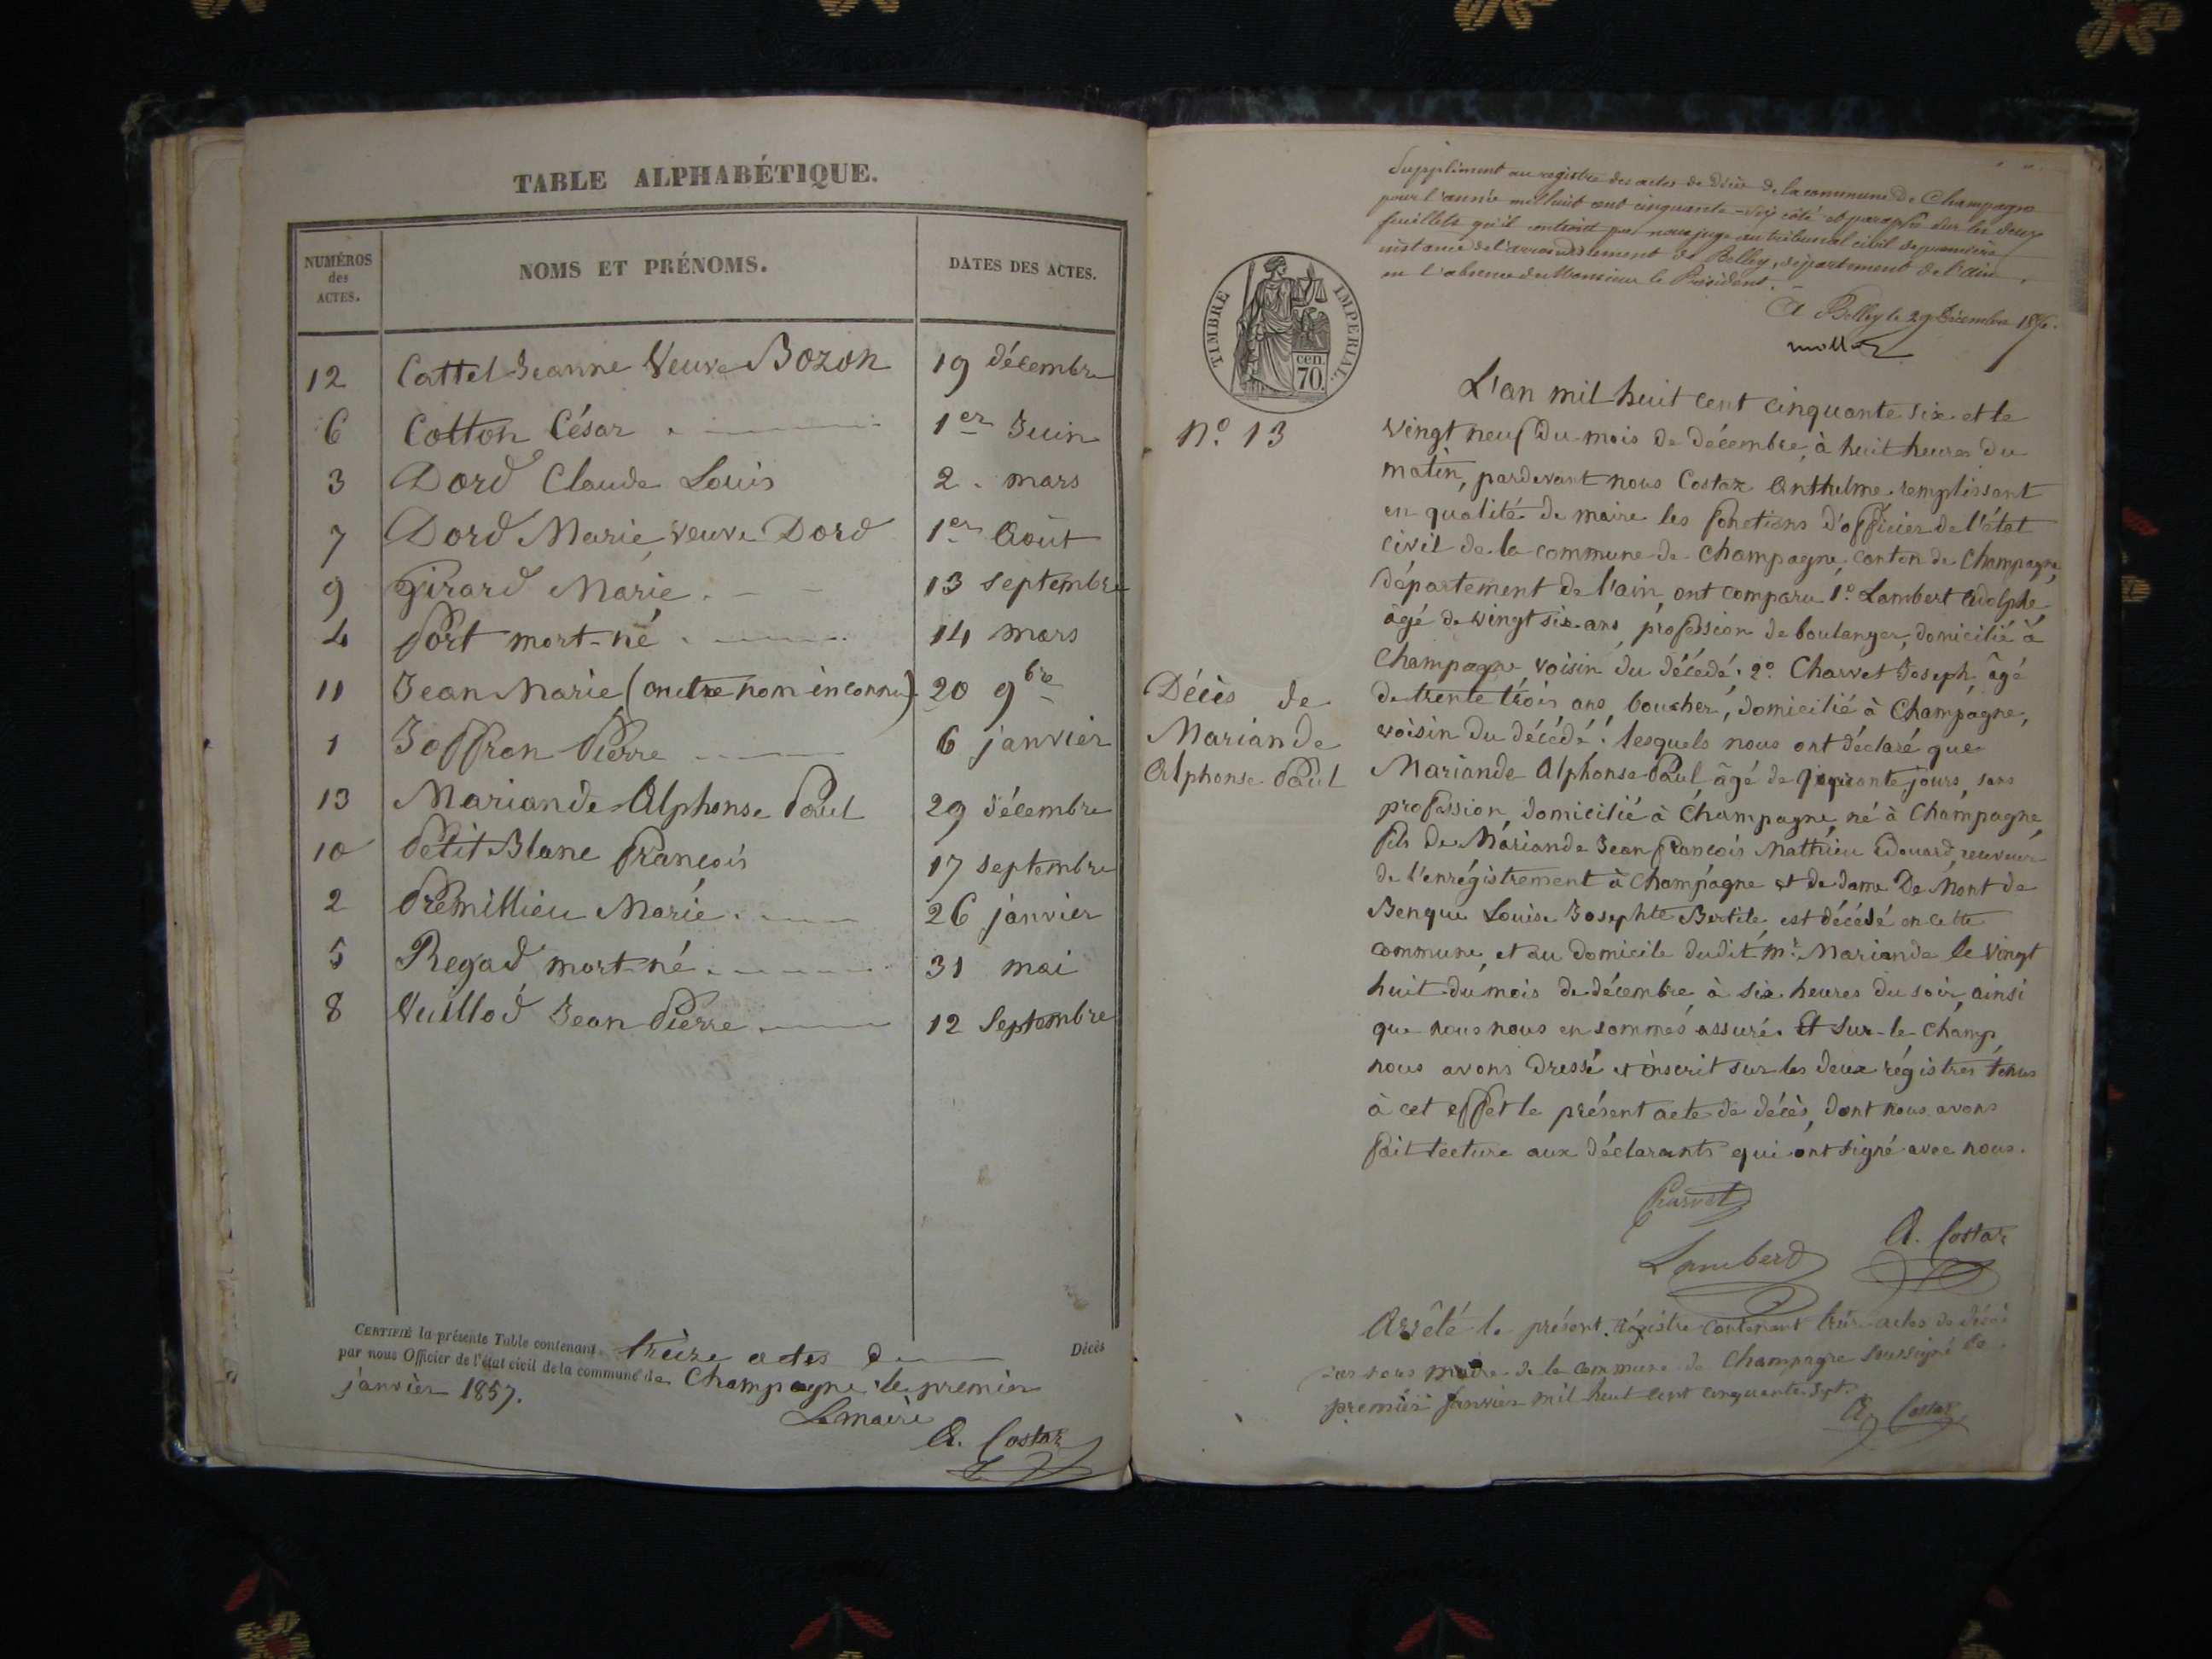 TABLE ALPHABÉTIQUE.
NUMÉROS des ACTES. NOMS ET PRÉNOMS. DATES DES ACTES.
12 Cattel Jeanne Veuve Bozon 19 décembre
6 Cotton César 1er Juin
3 Dord Claude Louis 2 mars
7 Dord Marie, veuve Dord 1er Août
9 Girard Marie 13 septembre
4 Port mort-né 14 mars
11 Jean Marie (autre nom inconnu) 20 9bre
1 Joffron Pierre 6 janvier
13 Mariande Alphonse Paul 29 décembre
10 Petit Blanc François 17 septembre
2 Prémillieu Marie 26 janvier
5 Regad mort-né 31 mai
8 Vuillod Jean Pierre 12 Septembre
CERTIFIÉ la présente Table contenant treize actes de Décès
par nous Officier de l'état civil de la commune de Champagne le premier
janvier 1857.
Le maire
A. Costaz
Supplément au registre des actes de Décès de la commune De Champagne
pour l'année mil huit cent cinquante-six côté et paraphé sur les deux
feuillets qu'il contient par nous juge au tribunal civil de première
instance de l'arrondissement de Belley, département de l'ain,
en l'absence de Monsieur le Président.
A Belley le 29 Décembre 1856.
TIMBRE IMPÉRIAL.
cen.
70.
N.º 13
L'an mil huit cent cinquante six et le
vingt neuf du mois de décembre, à huit heures du
matin, pardevant nous Costaz Anthelme remplissant
en qualité de maire les fonctions d'officier de l'état
civil de la commune de Champagne, canton de Champagne,
département de l'ain, ont comparu 1º Lambert Adolphe
âgé de vingt six ans, profession de boulanger, domicilié à
Champagne voisin du décédé. 2º Charvet Joseph, âgé
de trente trois ans, boucher, domicilié à Champagne,
voisin du décédé. lesquels nous ont déclaré que
Décès de
Mariande
Alphonse Paul
Mariande Alphonse Paul, âgé de jours, sans
profession, domicilié à Champagne, né à Champagne,
fils de Mariande Jean François Mathieu Edouard, receveur
de l'enrégistrement à Champagne et de dame De Mont de
Benque Louise Josephte Bertile, est décédé en cette
commune, et au domicile dudit mr. Mariande le vingt
huit du mois de décembre à six heures du soir, ainsi
que nous nous en sommes assuré. Et sur-le-champ,
nous avons dressé et inscrit sur les deux régistres tenus
à cet effet le présent acte de décès, dont nous avons
fait lecture aux déclarants qui ont signé avec nous.
Charvet
Lambert A. Costaz
Arrêté le présent régistre contenant treize actes de décès
par nous maire de la commune de Champagne soussigné le
premier janvier mil huit cent cinquante sept.
A. Costaz